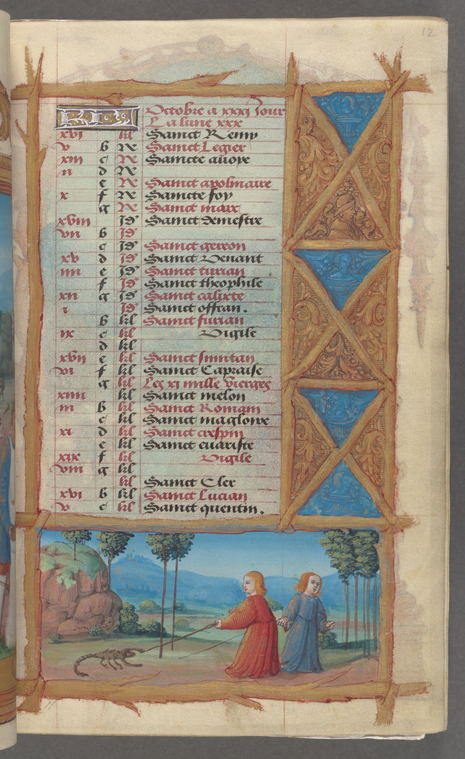 12
Octobre a xxxi Jour
La lune xxx
xvi kl Sainct Remy
v b N Sainct Legier
xiii c N Saincte avoye
ii d N
e N Sainct apolinaire
x f N Saincte foy
g N Sainct marc
xviii Id Sainct demestre
vii b Id
c Id Sainct gereon
xv d Id Sainct Venant
iiii e Id Sainct turian
f Id Sainct theophile
xii g Id Sainct calixte
i Id Sainct offran.
b kl Sainct furian
ix c kl Vigile
d kl
xvii e kl Sainct
vi f kl Sainct Capraise
g kl Les xi mille Vierges
xiiii kl Sainct melon
iii b kl Sainct Romain
c kl Sainct magloire
xi d kl Sainct crespin
e kl Sainct evariste
xix f kl Vigile
viii g kl
kl Sainct Cler
xvi b kl Sainct Lucian
v c kl Sainct quentin.